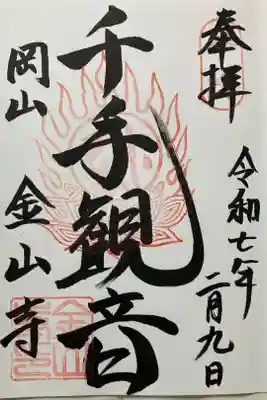 奉拝
令和七年
二月九日
千手観音
岡山
金山寺